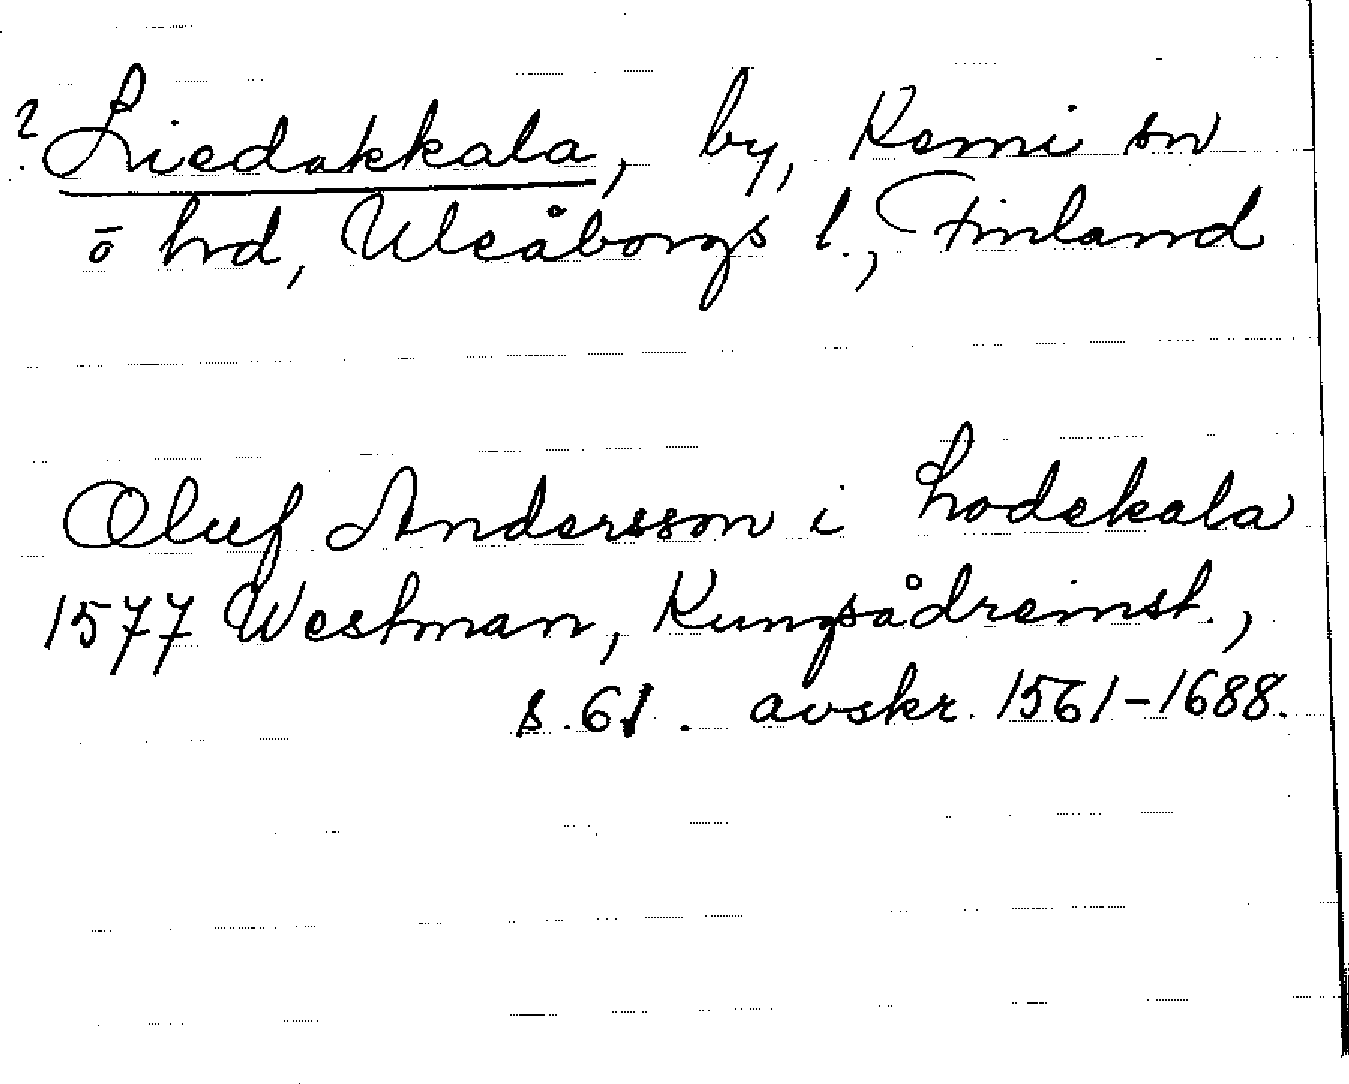 ? Liedakkala, by, Kemi sn
ō hrd, Uleåborgs l., Finland
Oluf Andersson i Lodekala
1577 Westman, Kungsådreinst.,
s. 61. avskr. 1561-1688.